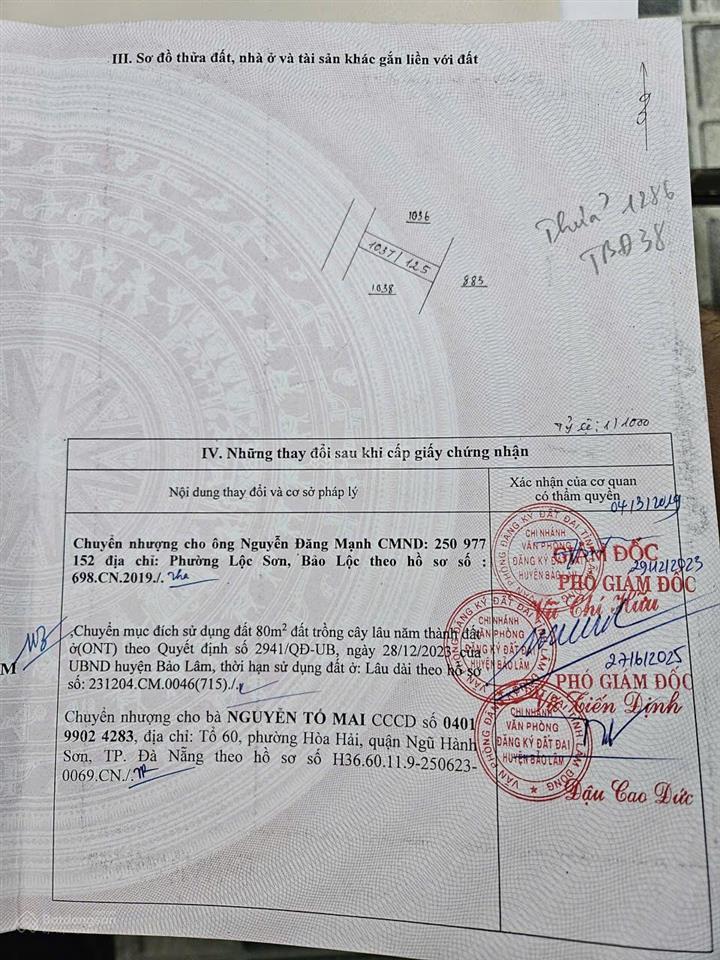 III. Sơ đồ thửa đất, nhà ở và tài sản khác gắn liền với đất
1036
Thửa 1286
TBĐ 38
1037/125
1038
883
Tỷ lệ: 1/1000
IV. Những thay đổi sau khi cấp giấy chứng nhận
Nội dung thay đổi và cơ sở pháp lý
Xác nhận của cơ quan
có thẩm quyền
04/3/2019
Chuyển nhượng cho ông Nguyễn Đăng Mạnh CMND: 250 977
152 địa chỉ: Phường Lộc Sơn, Bảo Lộc theo hồ sơ số :
698.CN.2019./.
CHI NHÁNH
VĂN PHÒNG
ĐĂNG KÝ ĐẤT ĐAI
HUYỆN BẢO LÂM
GIÁM ĐỐC
29/12/2023
PHÓ GIÁM ĐỐC
Vũ Chí Hữu
M
Chuyển mục đích sử dụng đất 80m² đất trồng cây lâu năm thành đất
ở(ONT) theo Quyết định số 2941/QĐ-UB, ngày 28/12/2023 của
UBND huyện Bảo Lâm, thời hạn sử dụng đất ở: Lâu dài theo hồ sơ
số: 231204.CM.0046(715)./.
CHI NHÁNH
VĂN PHÒNG
ĐĂNG KÝ ĐẤT ĐAI
HUYỆN BẢO LÂM
27/6/2025
PHÓ GIÁM ĐỐC
Tiến Định
Chuyển nhượng cho bà NGUYỄN TỐ MAI CCCD số 0401
9902 4283, địa chỉ: Tổ 60, phường Hòa Hải, quận Ngũ Hành
Sơn, TP. Đà Nẵng theo hồ sơ số H36.60.11.9-250623-
0069.CN./.
VĂN PHÒNG ĐĂNG KÝ ĐẤT ĐAI TỈNH LÂM ĐỒNG
CHI NHÁNH
VĂN PHÒNG
ĐĂNG KÝ ĐẤT ĐAI
HUYỆN BẢO LÂM
Đậu Cao Đức
Batdongsan